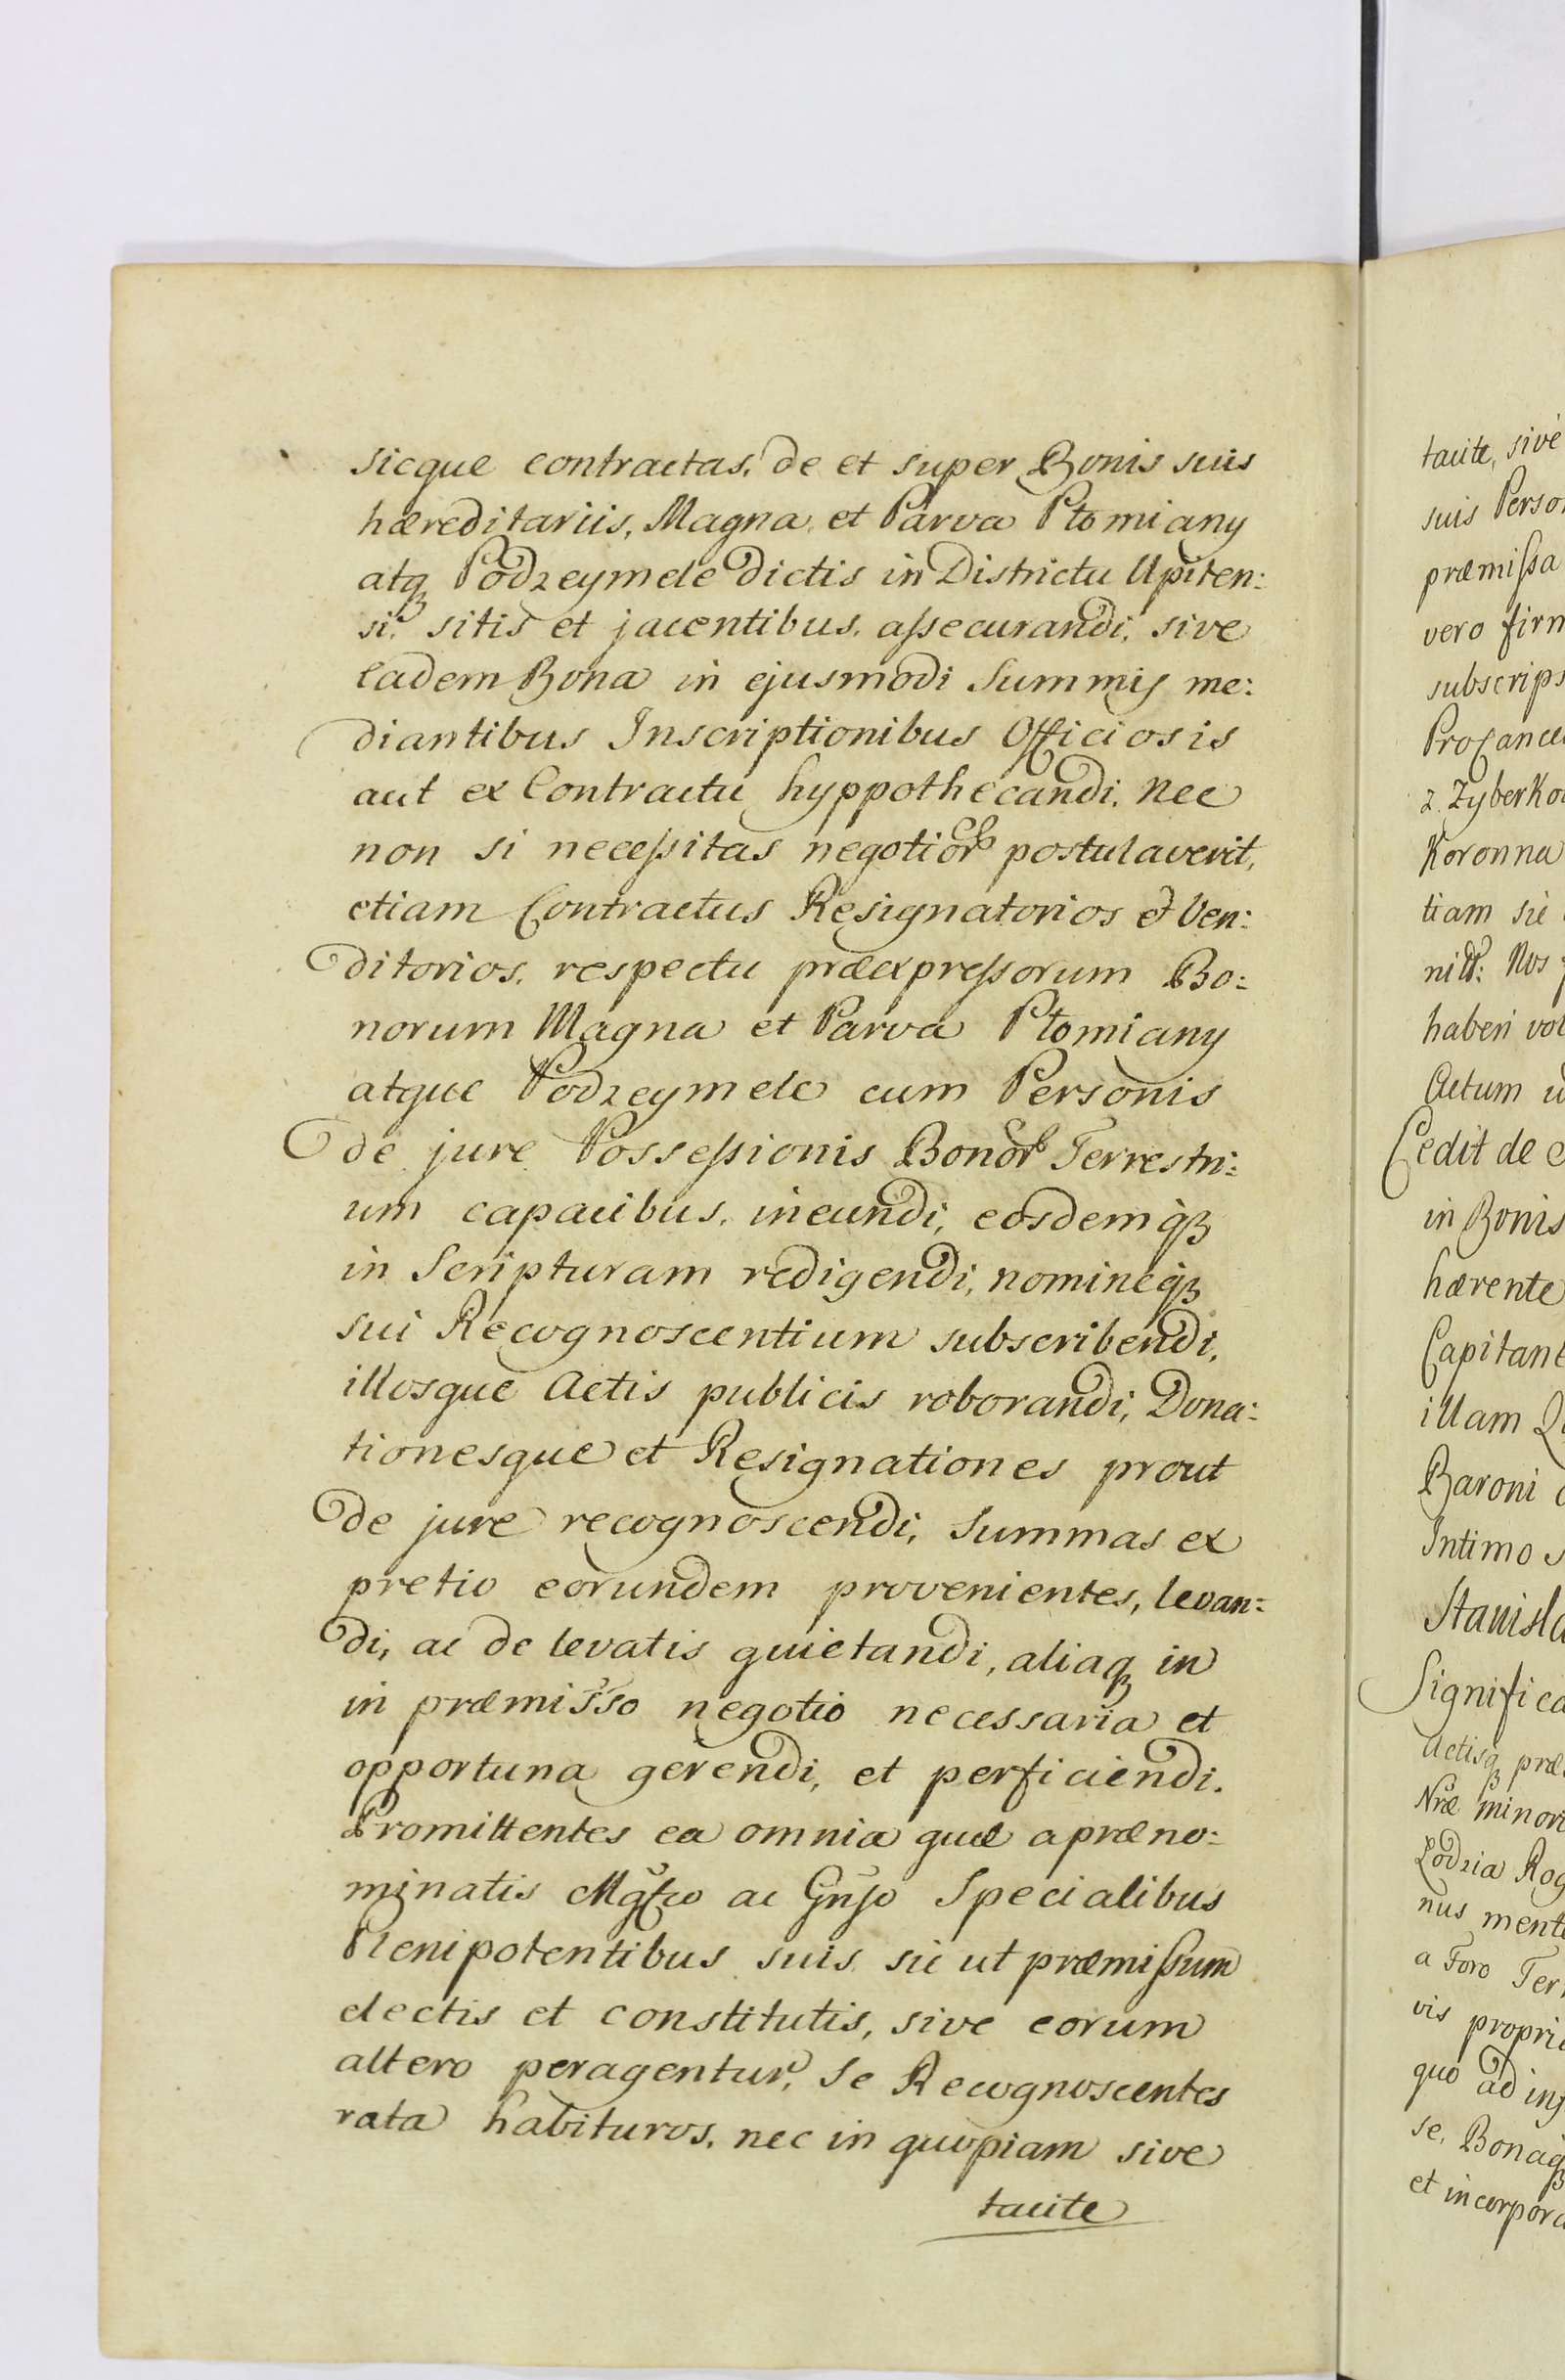 sicque contractas, de et super Bonis suis
hæreditariis, Magna et Parva Ptomiany
atqꝫ Podzeymele dictis in Districtu Upiten:
si, sitis et jacentibus, assecurandi, sive
eadem Bona in ejusmodi Summis me:
diantibus Inscriptionibus Officiosis
aut ex Contractu hyppothecandi. Nec
non si necessitas negotior̃ postulaverit,
etiam Contractus Resignatorios et Ven:
ditorios, respectu præexpressorum Bo:
norum Magna et Parva Ptomiany
atque Podzeymele cum Personis
de jure Possessionis Bonor̃ Terrestri:
um capacibus, ineundi, eosdemqꝫ
in Scripturam redigendi, nomineqꝫ
sui Recognoscentium subscribendi,
illosque Actis publicis roborandi, Dona:
tionesque et Resignationes prout
de jure recognoscendi, Summas ex
pretio eorundem provenientes, levan:
di, ac de levatis quietandi, aliaqꝫ in
in præmisso negotio necessaria et
opportuna gerendi, et perficiendi.
Promittentes ea omnia quæ a præno:
minatis Mgfco ac Gnso Specialibus
Plenipotentibus suis sic ut præmissum
electis et constitutis, sive eorum
altero peragentur, Se Recognoscentes
rata habituros, nec in quopiam sive
tacite
tacite, sive
suis Perso
præmissa
vero firm
subscrips
ProCance
z Zyberko
Koronna
tiam sic
haberi vol
Actum u
Cedit de e
in Bonis
hærente
Capitane
illam Q
Baroni
Intimo S
Stanisla
Significa
Actisqꝫ præ
Nræ minor
Lodzia Rog
nus ment
a Foro Terr
vis propri
quo ad ins
se, Bonaqꝫ
et incorpora